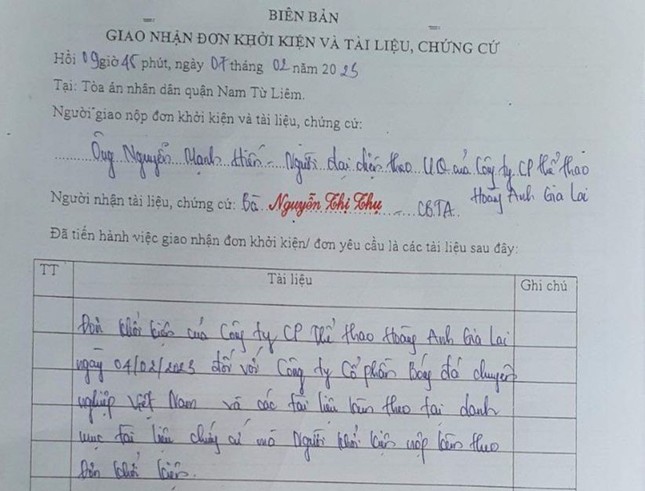 BIÊN BẢN
GIAO NHẬN ĐƠN KHỞI KIỆN VÀ TÀI LIỆU, CHỨNG CỨ
Hồi 09 giờ 45 phút, ngày 07 tháng 02 năm 2023
Tại: Tòa án nhân dân quận Nam Từ Liêm.
Người giao nộp đơn khởi kiện và tài liệu, chứng cứ:
Ông Nguyễn Mạnh Hiến - Người đại diện theo UQ của Công ty CP thể thao
Hoàng Anh Gia Lai
Người nhận tài liệu, chứng cứ: Bà Nguyễn Thị Thu CBTA.
Đã tiến hành việc giao nhận đơn khởi kiện/ đơn yêu cầu là các tài liệu sau đây:
TT Tài liệu Ghi chú
Đơn khởi kiện của Công ty CP Thể thao Hoàng Anh Gia Lai
ngày 04/02/2023 đối với Công ty Cổ phần Bóng đá chuyên
nghiệp Việt Nam và các tài liệu kèm theo tại danh
mục tài liệu chứng cứ mà Người khởi kiện nộp kèm theo
Đơn khởi kiện.